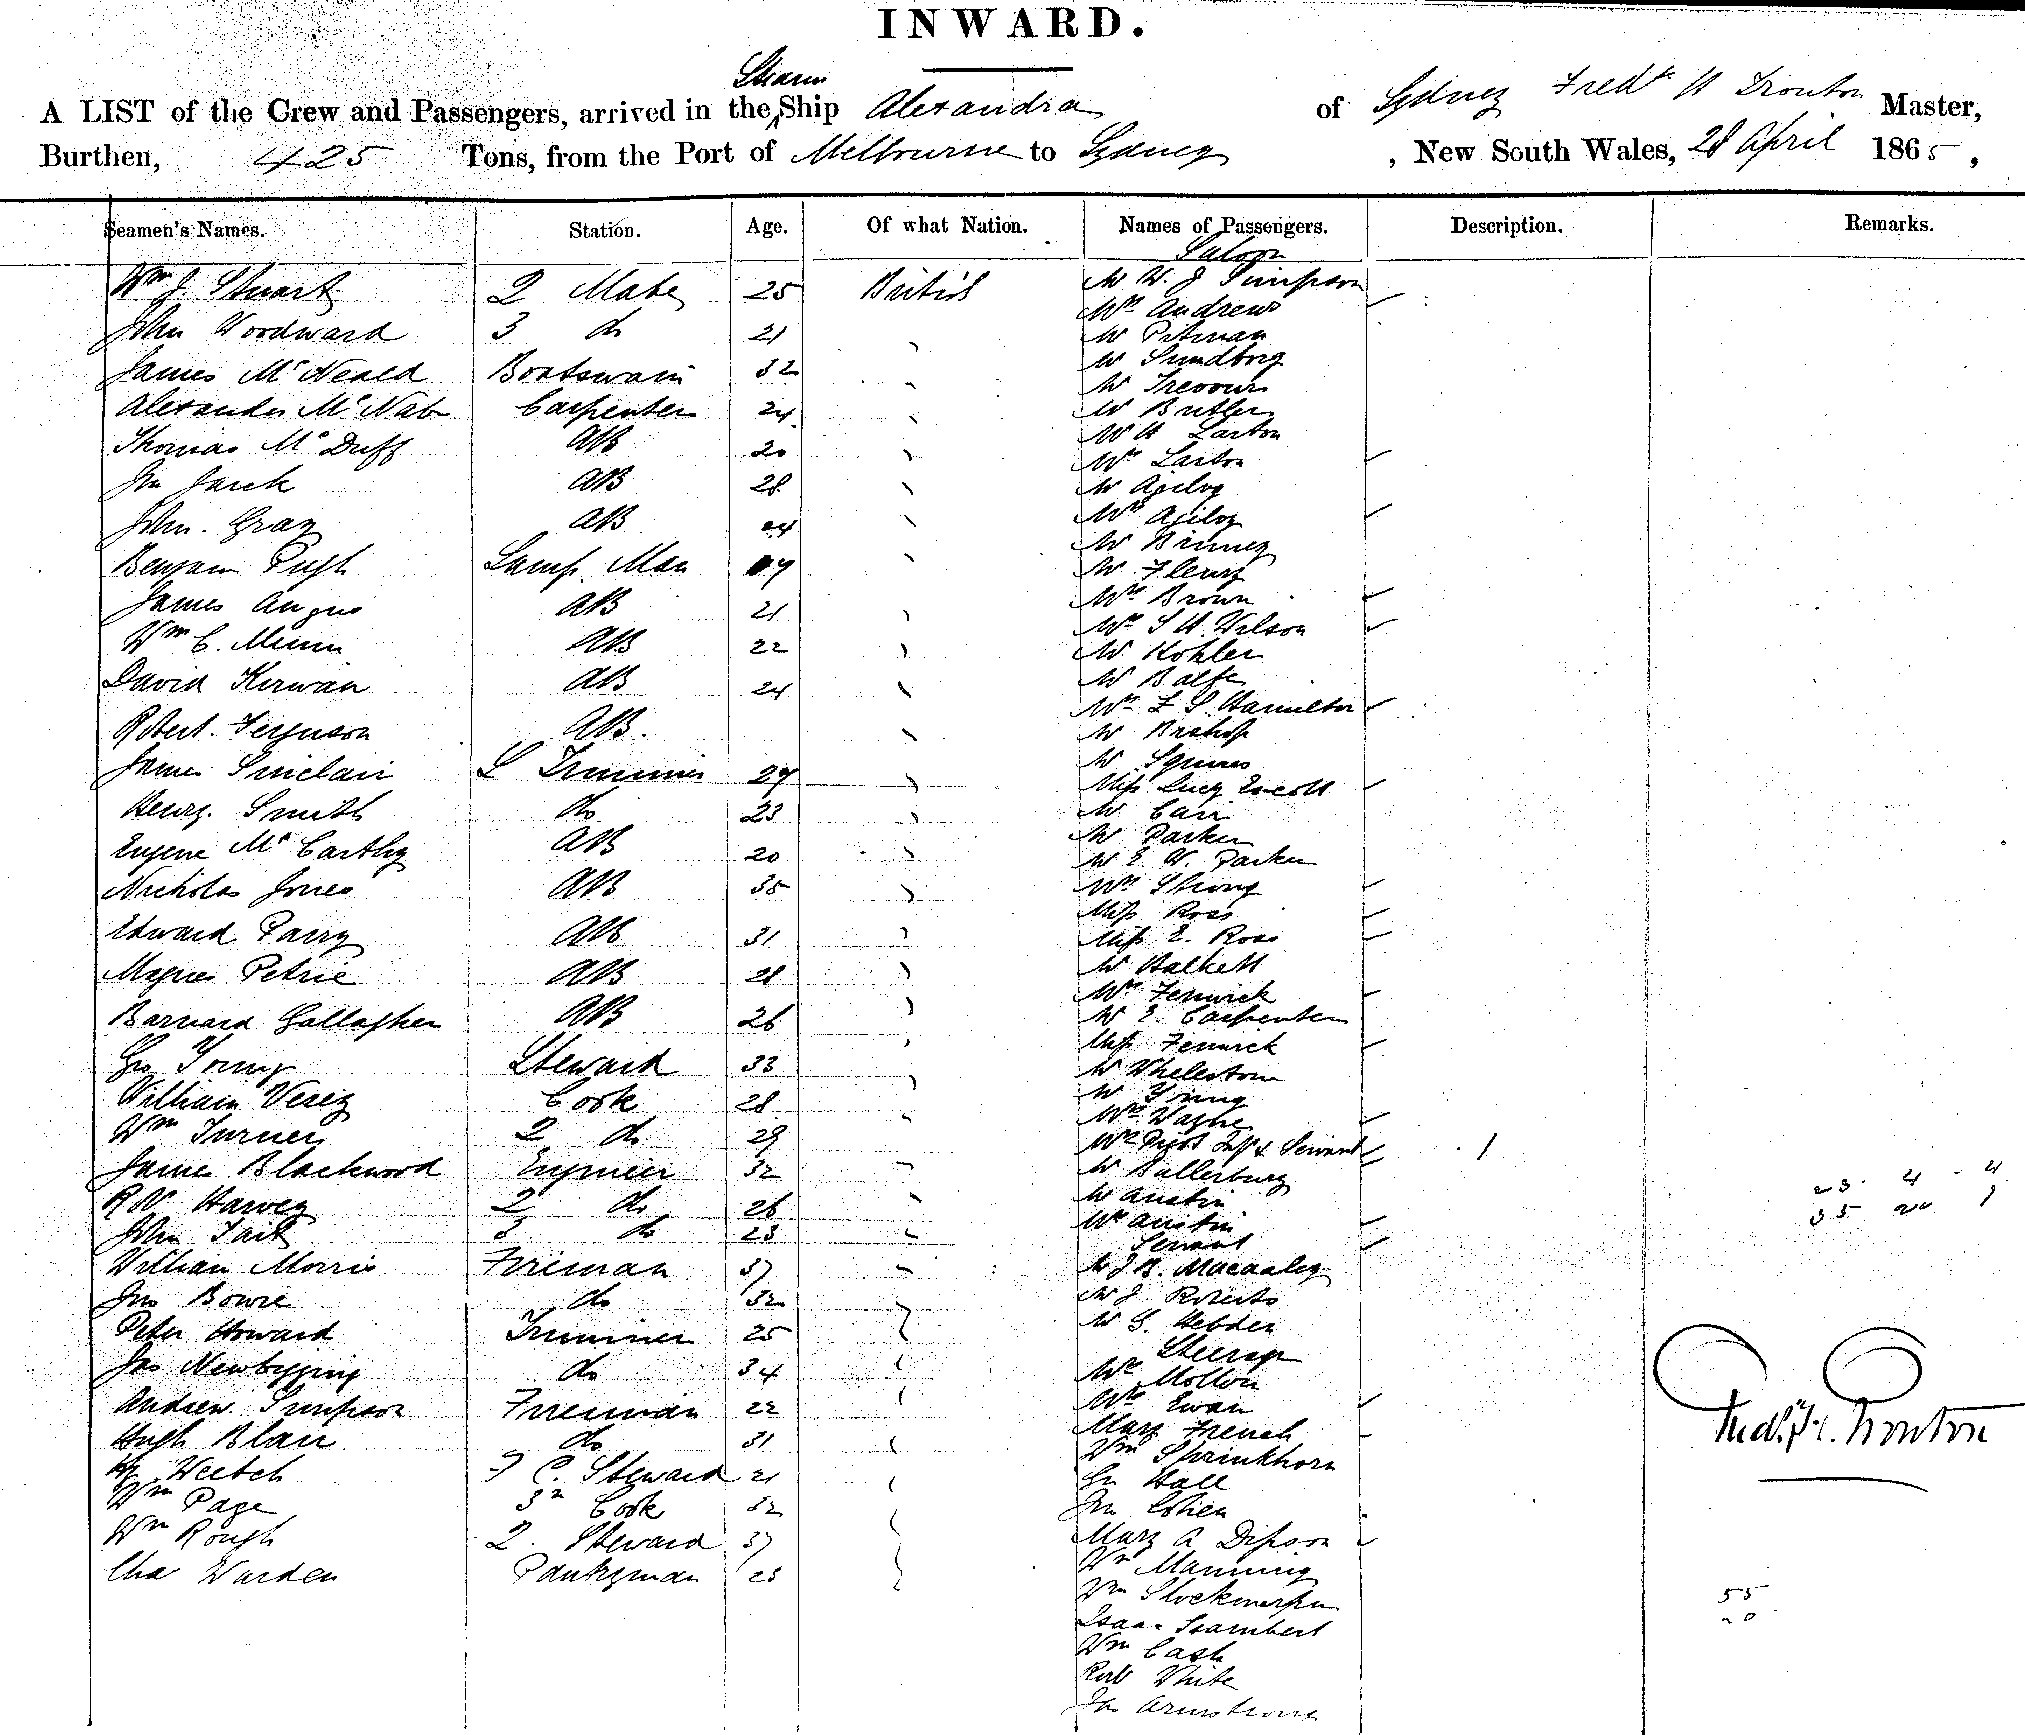 INWARD.
Steam
A LIST of the Crew and Passengers, arrived in the Ship Alexandra of Sydney Fredk H Trouton Master,
Burthen, 425 Tons, from the Port of Melbourne to Sydney, New South Wales, 28 April 1865,
Seamen's Names. Station. Age. Of what Nation. Names of Passengers. Description. Remarks.
Saloon
Wm J Stuart 2 Mate 25 British Mr W. J Simpson
Mrs Andrews
John Woodward 3 do 21 Mr Pitman
James McNeald Boatswain 32 Mr Sundborg
Mr
Alexander McNab Carpenter 24 Mr Butler
Mr H Larton
Thomas McDuff AB 20 Mrs Larton
Jno AB 28 Mr
Mrs
John Gray AB Mr Binney
Benjam Pugh Lamp Man Mr Fleury
Mrs Brown
James Angus AB 21 Mrs S H Wilson
Wm C. AB 22 Mr Kohler
David Kirwan AB 24 Mr Balfe
Mrs F S Hamilton
Robert Ferguson AB. Mr Bishop
Mr Squires
James Sinclair Trimmer 27 Miss Lucy
Henry Smith do 23 Mr Carr
Mr Parker
Eugene McCarthy AB 20 Mr E W. Parker
Nicholas Jones AB 35 Mrs Strong
Miss Ross
Edward Parry AB 31 Miss E. Ross
Magnes Petrie AB 28 Mr Halkett
Mrs Fenwick
Barnard Gallagher AB 26 Mr E Carpenter
Miss Fenwick
Geo Young Steward 33 Mr Whelestone
William Verey Cook 28 Mr Young
Mrs Wayne
Wm Turner 2 do 29 Mrs Inft & Servant 1
James Blackwood Engineer 32 Mr Ballerburg 23 4 4
Mr Austin
R W Harvey 2 do 26 Mrs Austin 35 20 1
John Tait 3 do 23 Servant
William Morris Fireman 37 Mr J B. Macaaley
Jno Bowie do 32 Mr J Roberts
Peter Howard Trimmer 25 Mr G. Hebden
Steerage
Jas Newbigging do 34 Mr Mollon
Andrew Simpson Fireman 22 Mrs Ewan
Hugh Blair do 31 Mary French
Wm Sprinkhorn
Hy Veitch Steward 21 Geo Hall
Wm Page 3rd Cook 32 Jno Cohen
Wm Rough 2. Steward 37 Mary A Dipson
Wm Manning
Chas Warden Pantryman 23 Wm
Isaac Isambert
Wm Cash
Robt White
Jas Armstrong
Fredk H. Trouton
55
20